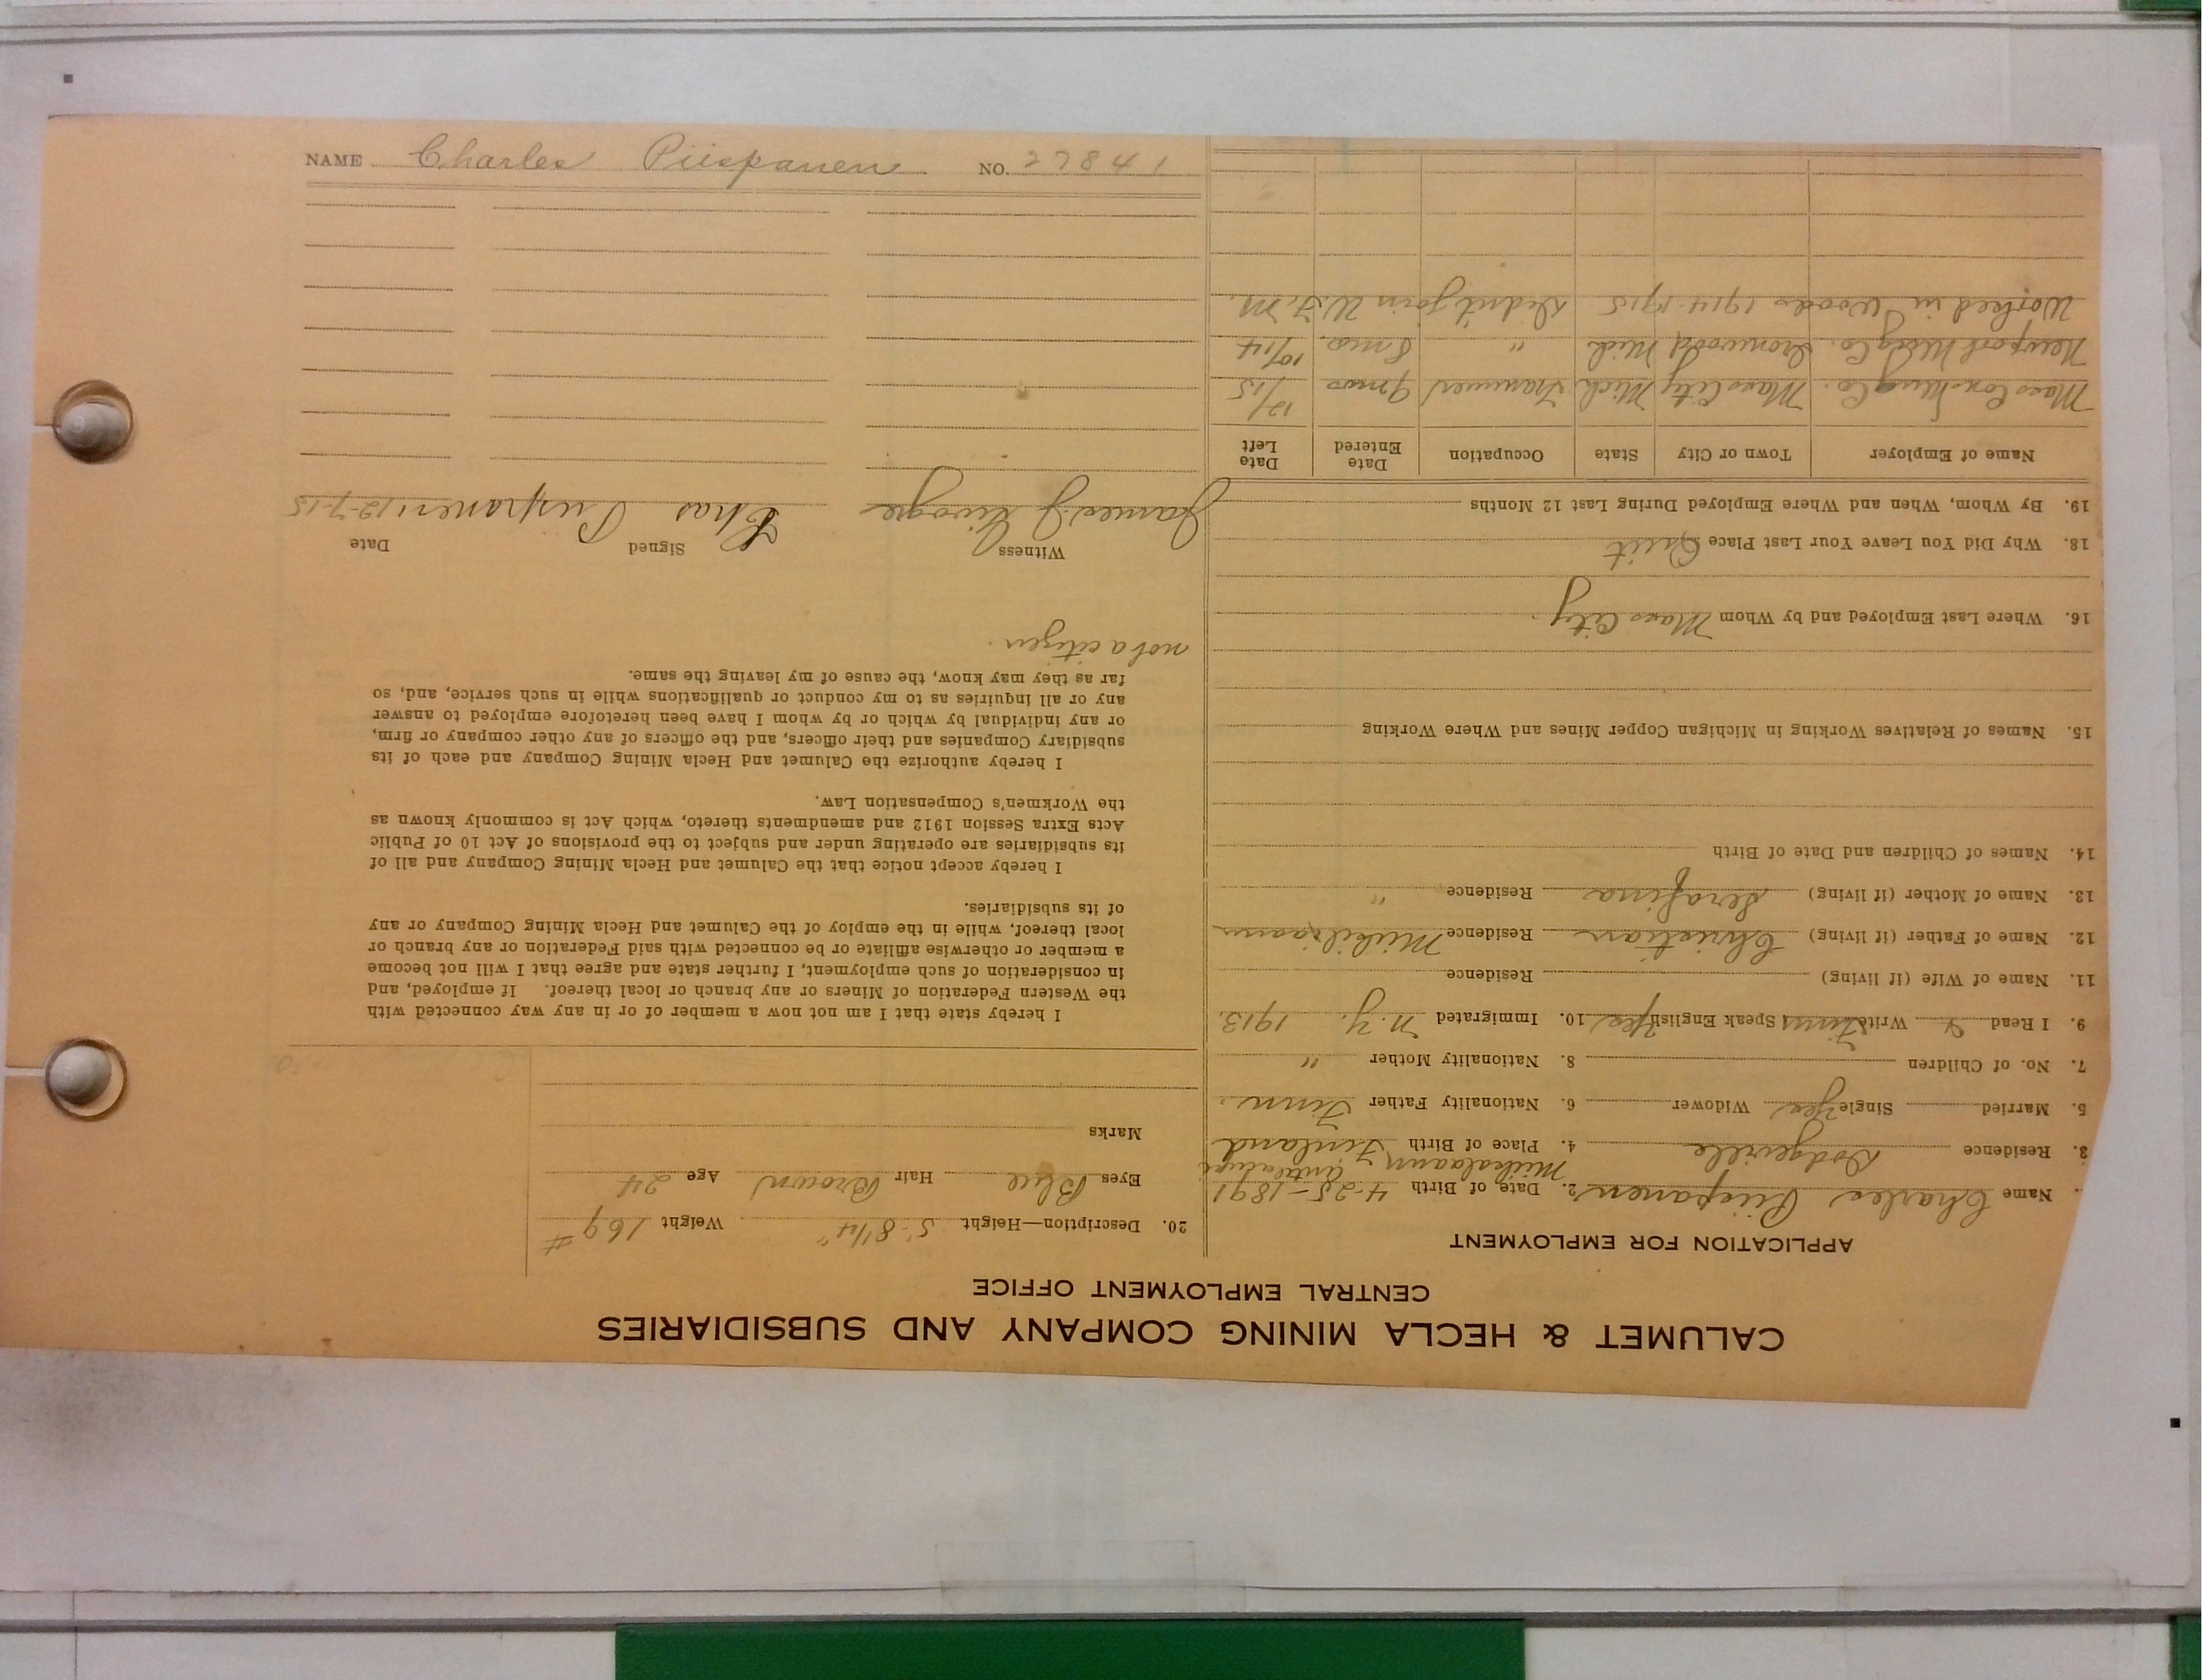 NAME Charles Piispanen NO. 27841
CALUMET & HECLA MINING COMPANY AND SUBSIDIARIES
CENTRAL EMPLOYMENT OFFICE
APPLICATION FOR EMPLOYMENT
. Name Charles Piispanen 2. Date of Birth 4-25-1891
3. Residence Dodgeville 4. Place of Birth Finland
5. Married Single Yes Widower 6. Nationality Father Finn.
7. No. of Children 8. Nationality Mother "
9. I Read & Write Finn Speak English Yes 10. Immigrated N.Y. 1913.
11. Name of Wife (if living) Residence
12. Name of Father (if living) Christian Residence
13. Name of Mother (if living) Serafina Residence "
14. Names of Children and Date of Birth
15. Names of Relatives Working in Michigan Copper Mines and Where Working
16. Where Last Employed and by Whom Mass City.
18. Why Did You Leave Your Last Place Quit
19. By Whom, When and Where Employed During Last 12 Months
Name of Employer Town or City State Occupation Date Entered Date Left
Mass Con Mng Co. Mass City Mich Trammer 9 mos 12/15
Newport Mng Co. Ironwood Mich " 8 mos. 10/14
Worked in Woods 1914-1915 Didn't join W.F.M.
20. Description—Height 5'-8 1/4" Weight 169#
Eyes Blue Hair Brown Age 24
Marks
I hereby state that I am not now a member of or in any way connected with
the Western Federation of Miners or any branch or local thereof. If employed, and
in consideration of such employment, I further state and agree that I will not become
a member or otherwise affiliate or be connected with said Federation or any branch or
local thereof, while in the employ of the Calumet and Hecla Mining Company or any
of its subsidiaries.
I hereby accept notice that the Calumet and Hecla Mining Company and all of
its subsidiaries are operating under and subject to the provisions of Act 10 of Public
Acts Extra Session 1912 and amendments thereto, which Act is commonly known as
the Workmen's Compensation Law.
I hereby authorize the Calumet and Hecla Mining Company and each of its
subsidiary Companies and their officers, and the officers of any other company or firm,
or any individual by which or by whom I have been heretofore employed to answer
any or all inquiries as to my conduct or qualifications while in such service, and, so
far as they may know, the cause of my leaving the same.
not a citizen.
Witness Signed Date
James J Chas Piispanen 12-7-15